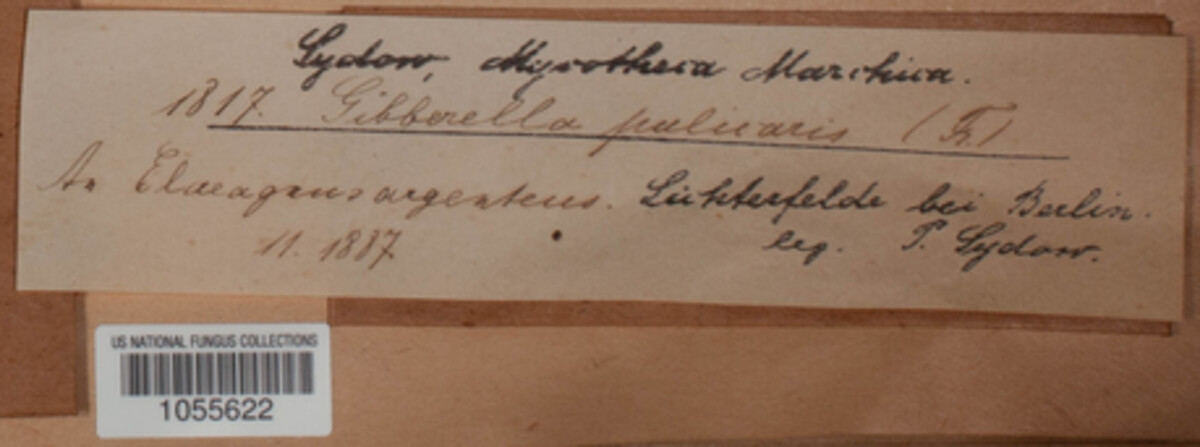 Sydow, Mycotheca Marchica.
1817. Gibberella pulicaris (Fr.)
An Elaeagnus argenteus. Lichterfelde bei Berlin.
11. 1887. leg. P. Sydow.
US NATIONAL FUNGUS COLLECTIONS
1055622